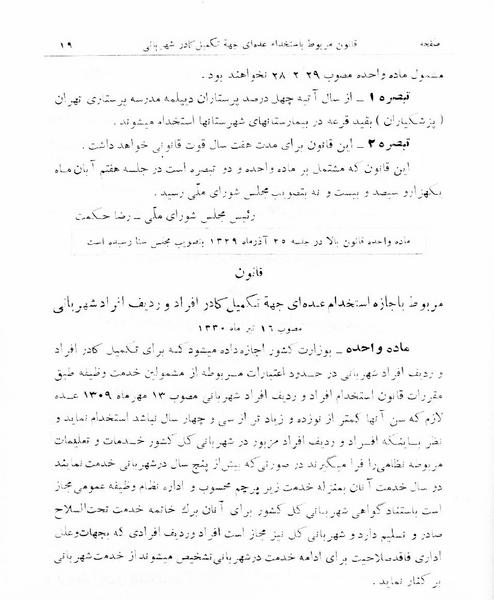 صفحه قانون مربوط باستخدام عده‌ای جهة تکمیل کادر شهربانی ۱۹
مشمول ماده واحده مصوب ۲۹ ر ۲ ر ۲۸ نخواهند بود .
تبصره ۱ – از سال آتیه چهل درصد پرستاران دیپلمه مدرسه پرستاری تهران
( پزشکیاران ) بقید قرعه در بیمارستانهای شهرستانها استخدام میشوند .
تبصره ۲ – این قانون برای مدت هفت سال قوت قانونی خواهد داشت .
این قانون که مشتمل بر ماده واحده و دو تبصره است در جلسه هفتم آبان ماه
یکهزارو سیصد و بیست و نه بتصویب مجلس شورای ملّی رسید .
رئیس مجلس شورای ملّی – رضا حکمت
ماده واحده قانون بالا در جلسه ۲۵ آذرماه ۱۳۲۹ بتصویب مجلس سنا رسیده است
قانون
مربوط باجازه استخدام عده‌ای جهة تکمیل کادر افراد و ردیف افراد شهربانی
مصوب ۱۶ تیر ماه ۱۳۳۰
ماده واحده – بوزارت کشور اجازه داده میشود که برای تکمیل کادر افراد
و ردیف افراد شهربانی در حدود اعتبارات مربوطه از مشمولین خدمت وظیفه طبق
مقررات قانون استخدام افراد و ردیف افراد شهربانی مصوب ۱۳ مهر ماه ۱۳۰۹ عده
لازم که سن آنها کمتر از نوزده و زیاد تر از سی و چهار سال نباشد استخدام نماید و
نظر باینکه افراد و ردیف افراد مزبور در شهربانی کل کشور خدمات و تعلیمات
مربوطه نظامی را فرا میگیرند در صورتی که بیش از پنج سال در شهربانی خدمت نمایند
دو سال خدمت آنان بمنزله خدمت زیر پرچم محسوب و اداره نظام وظیفه عمومی مجاز
است باستناد گواهی شهربانی کل کشور برای آنان برک خاتمه خدمت تحت‌السلاح
صادر و تسلیم دارد و شهربانی کل نیز مجاز است افراد وردیف افرادی که بجهات‌وعلل
اداری فاقد صلاحیت برای ادامه خدمت در شهربانی تشخیص میشوند از خدمت شهربانی
بر کنار نماید .